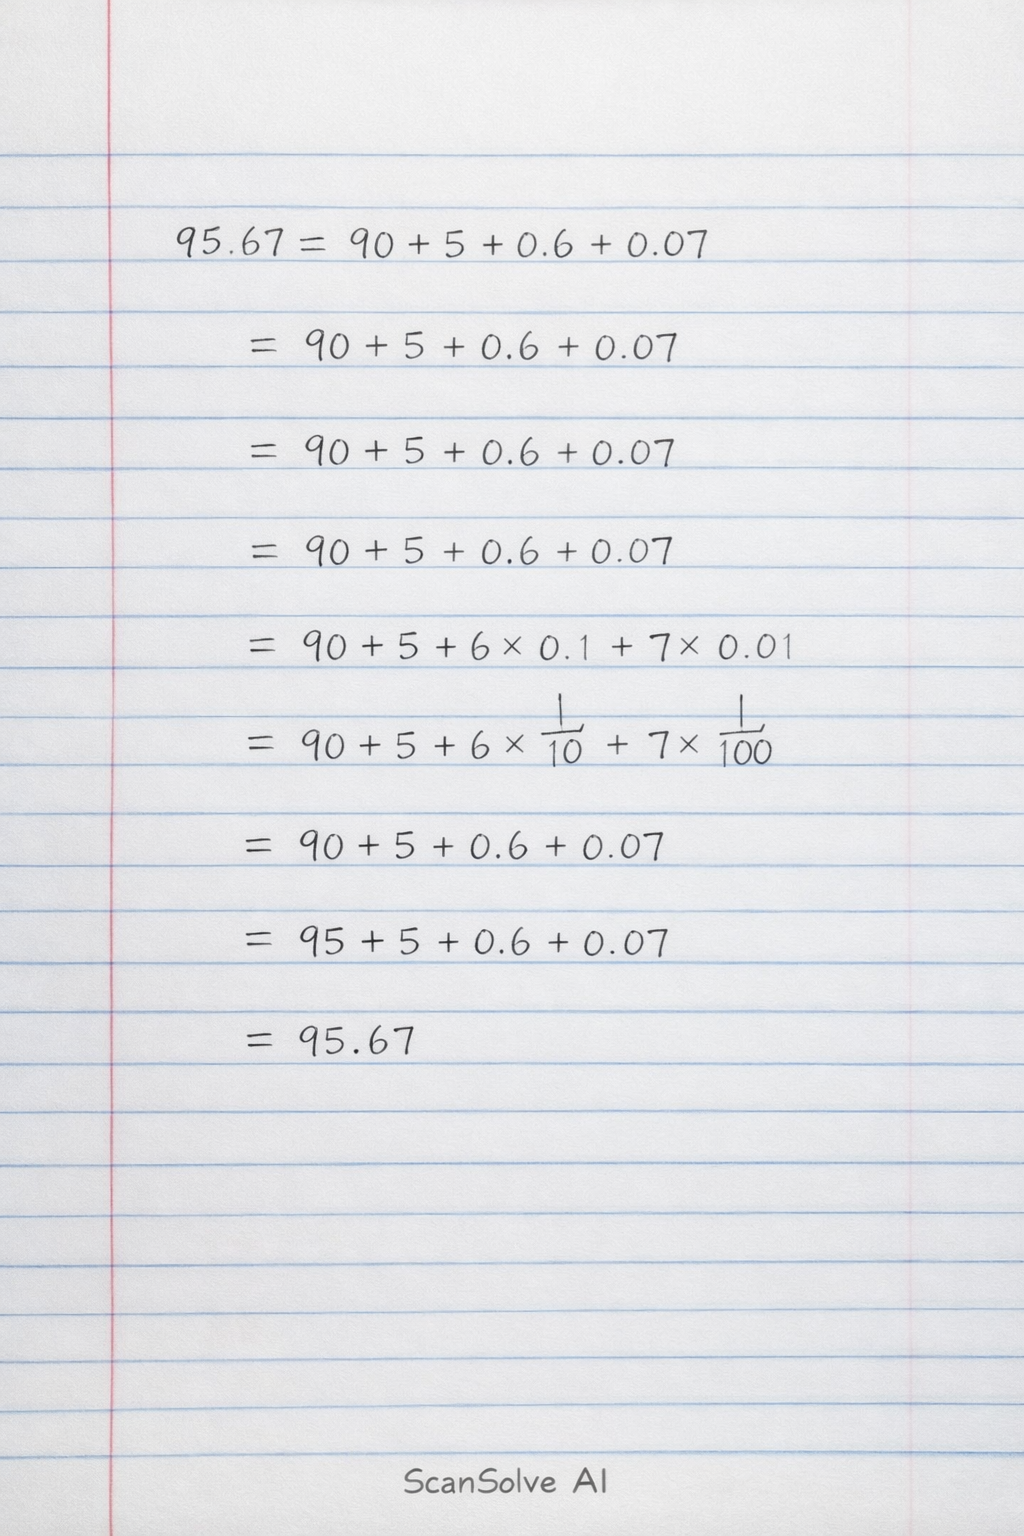 95.67 = 90 + 5 + 0.6 + 0.07
= 90 + 5 + 0.6 + 0.07
= 90 + 5 + 0.6 + 0.07
= 90 + 5 + 0.6 + 0.07
= 90 + 5 + 6 × 0.1 + 7 × 0.01
= 90 + 5 + 6 × 1/10 + 7 × 1/100
= 90 + 5 + 0.6 + 0.07
= 95 + 5 + 0.6 + 0.07
= 95.67
ScanSolve AI